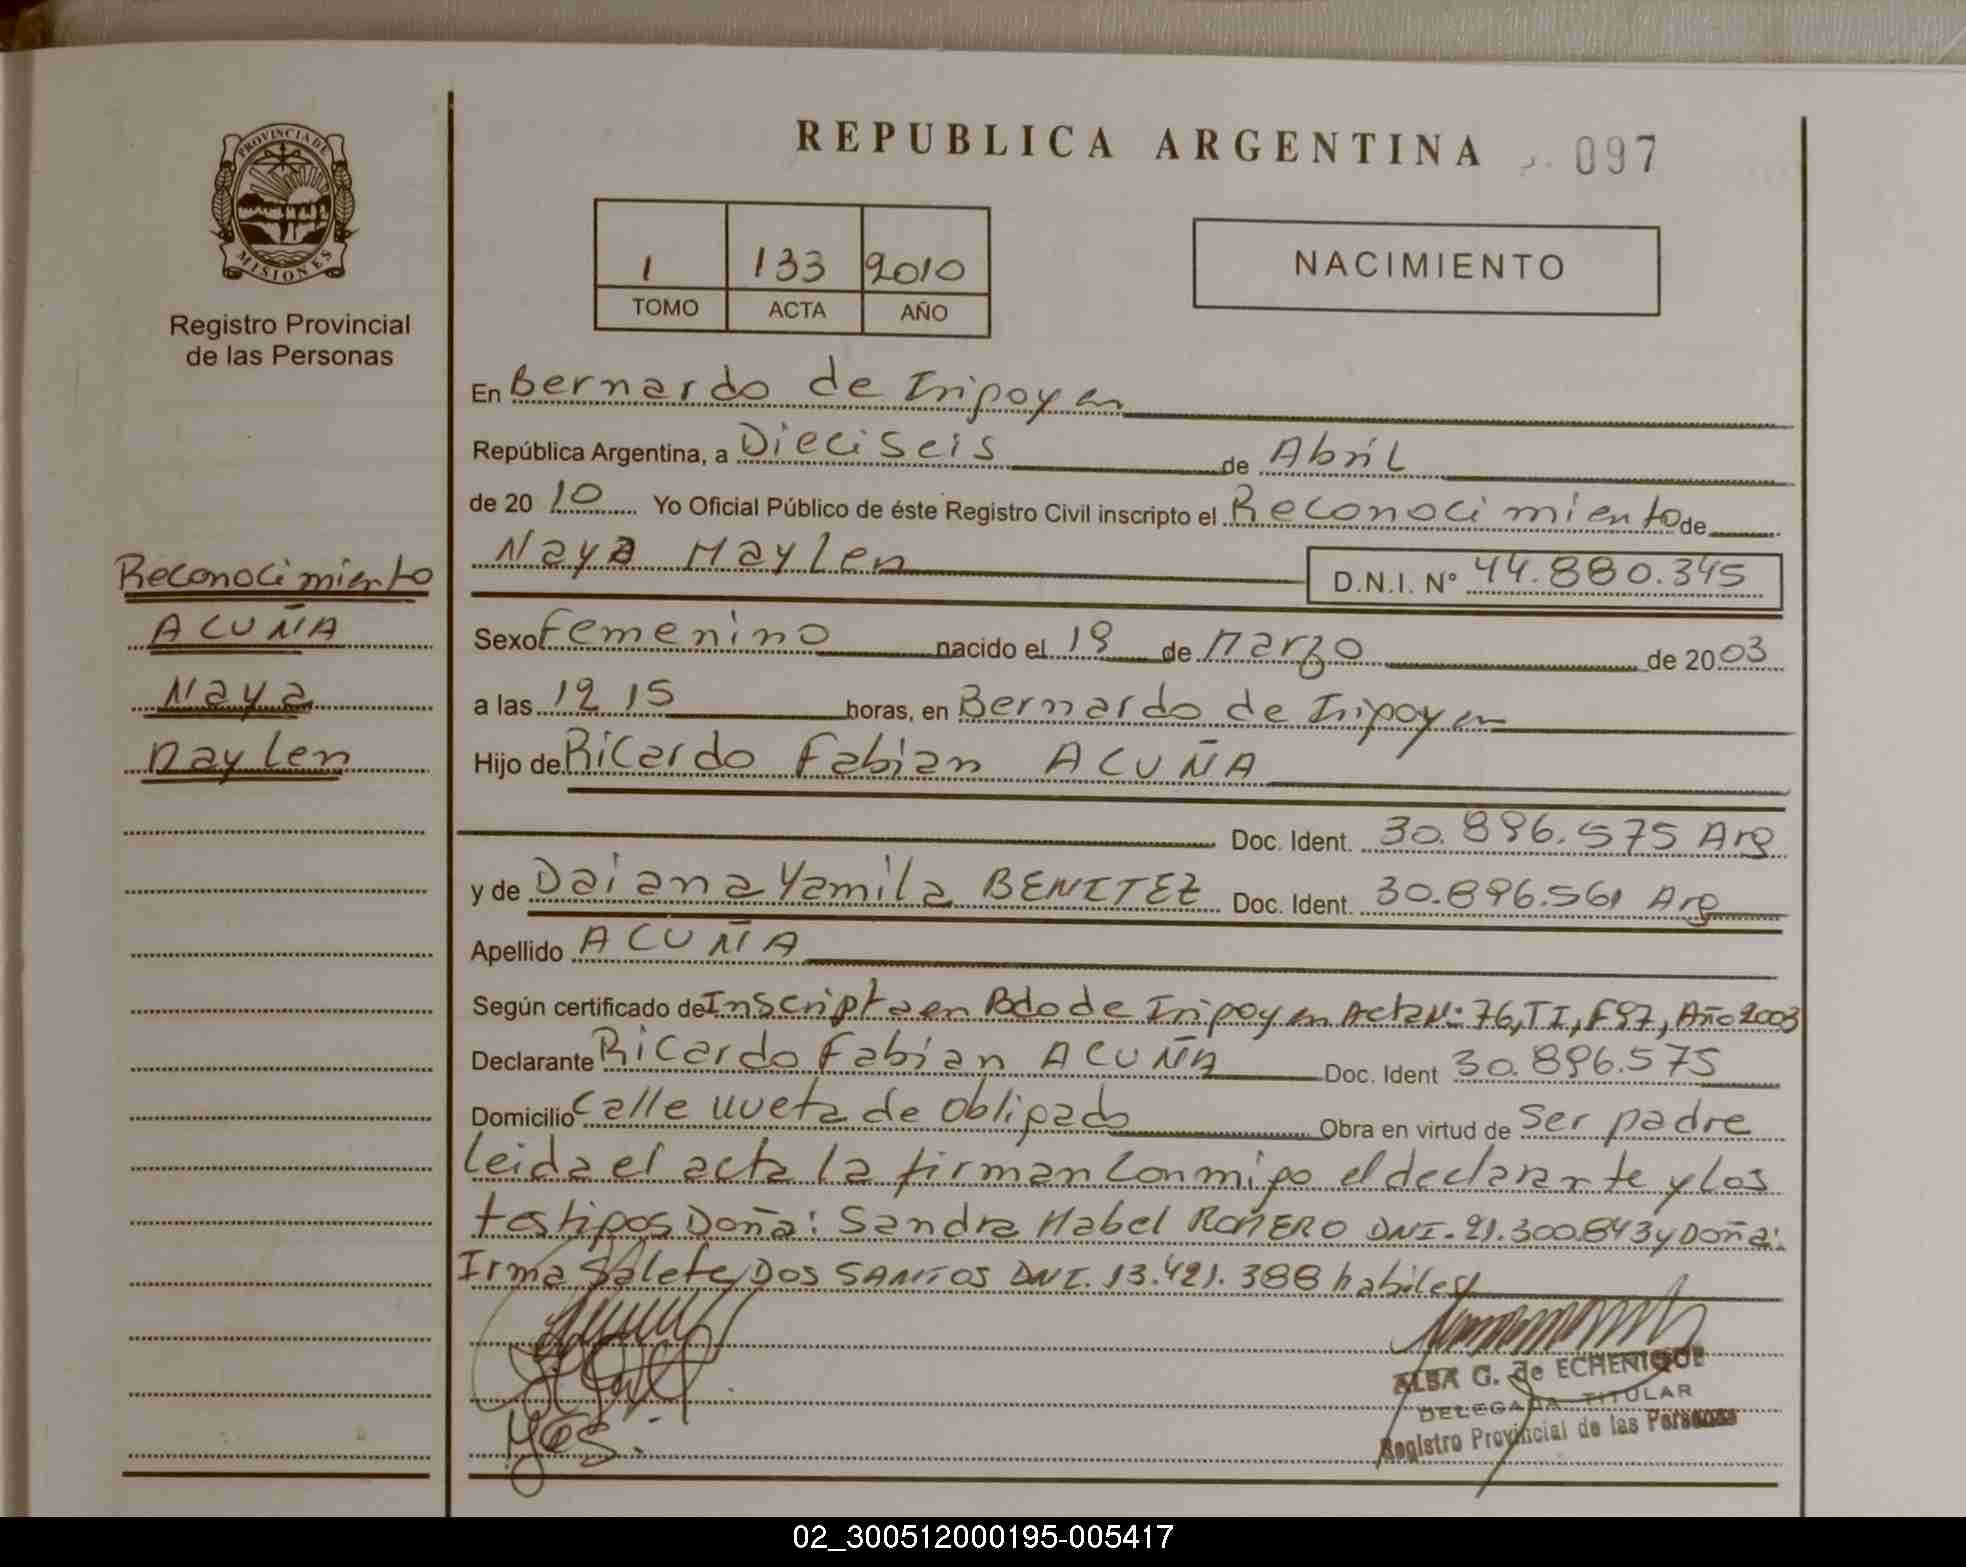 PROVINCIA DE
MISIONES
Registro Provincial
de las Personas
Reconocimiento
ACUÑA
Naya
Maylen
REPUBLICA ARGENTINA 097
1 133 2010
TOMO ACTA AÑO
NACIMIENTO
En Bernardo de Irigoyen
República Argentina, a Dieciseis de Abril
de 20 10 Yo Oficial Público de éste Registro Civil inscripto el Reconocimiento de
Naya Maylen D.N.I. N° 44.880.345
Sexo Femenino nacido el 19 de Marzo de 20 03
a las 12 15 horas, en Bernardo de Irigoyen
Hijo de Ricardo Fabian ACUÑA
Doc. Ident. 30.896.575 Arg
y de Daiana Yamila BENITEZ Doc. Ident. 30.896.561 Arg
Apellido ACUÑA
Según certificado de Inscripta en Bdo de Irigoyen Acta N: 76, TI, F97, Año 2003
Declarante Ricardo Fabian ACUÑA Doc. Ident 30.896.575
Domicilio Calle Vuelta de Obligado Obra en virtud de Ser padre
Leida el acta la firman Conmigo el declarante y los
testigos Doña: Sandra Mabel ROMERO DNI. 21.300.843 y Doña:
Irma Salete DOS SANTOS DNI. 13.421.388 habiles
ALBA G. de ECHENIQUE
DELEGADA TITULAR
Registro Provincial de las Personas
02_300512000195-005417